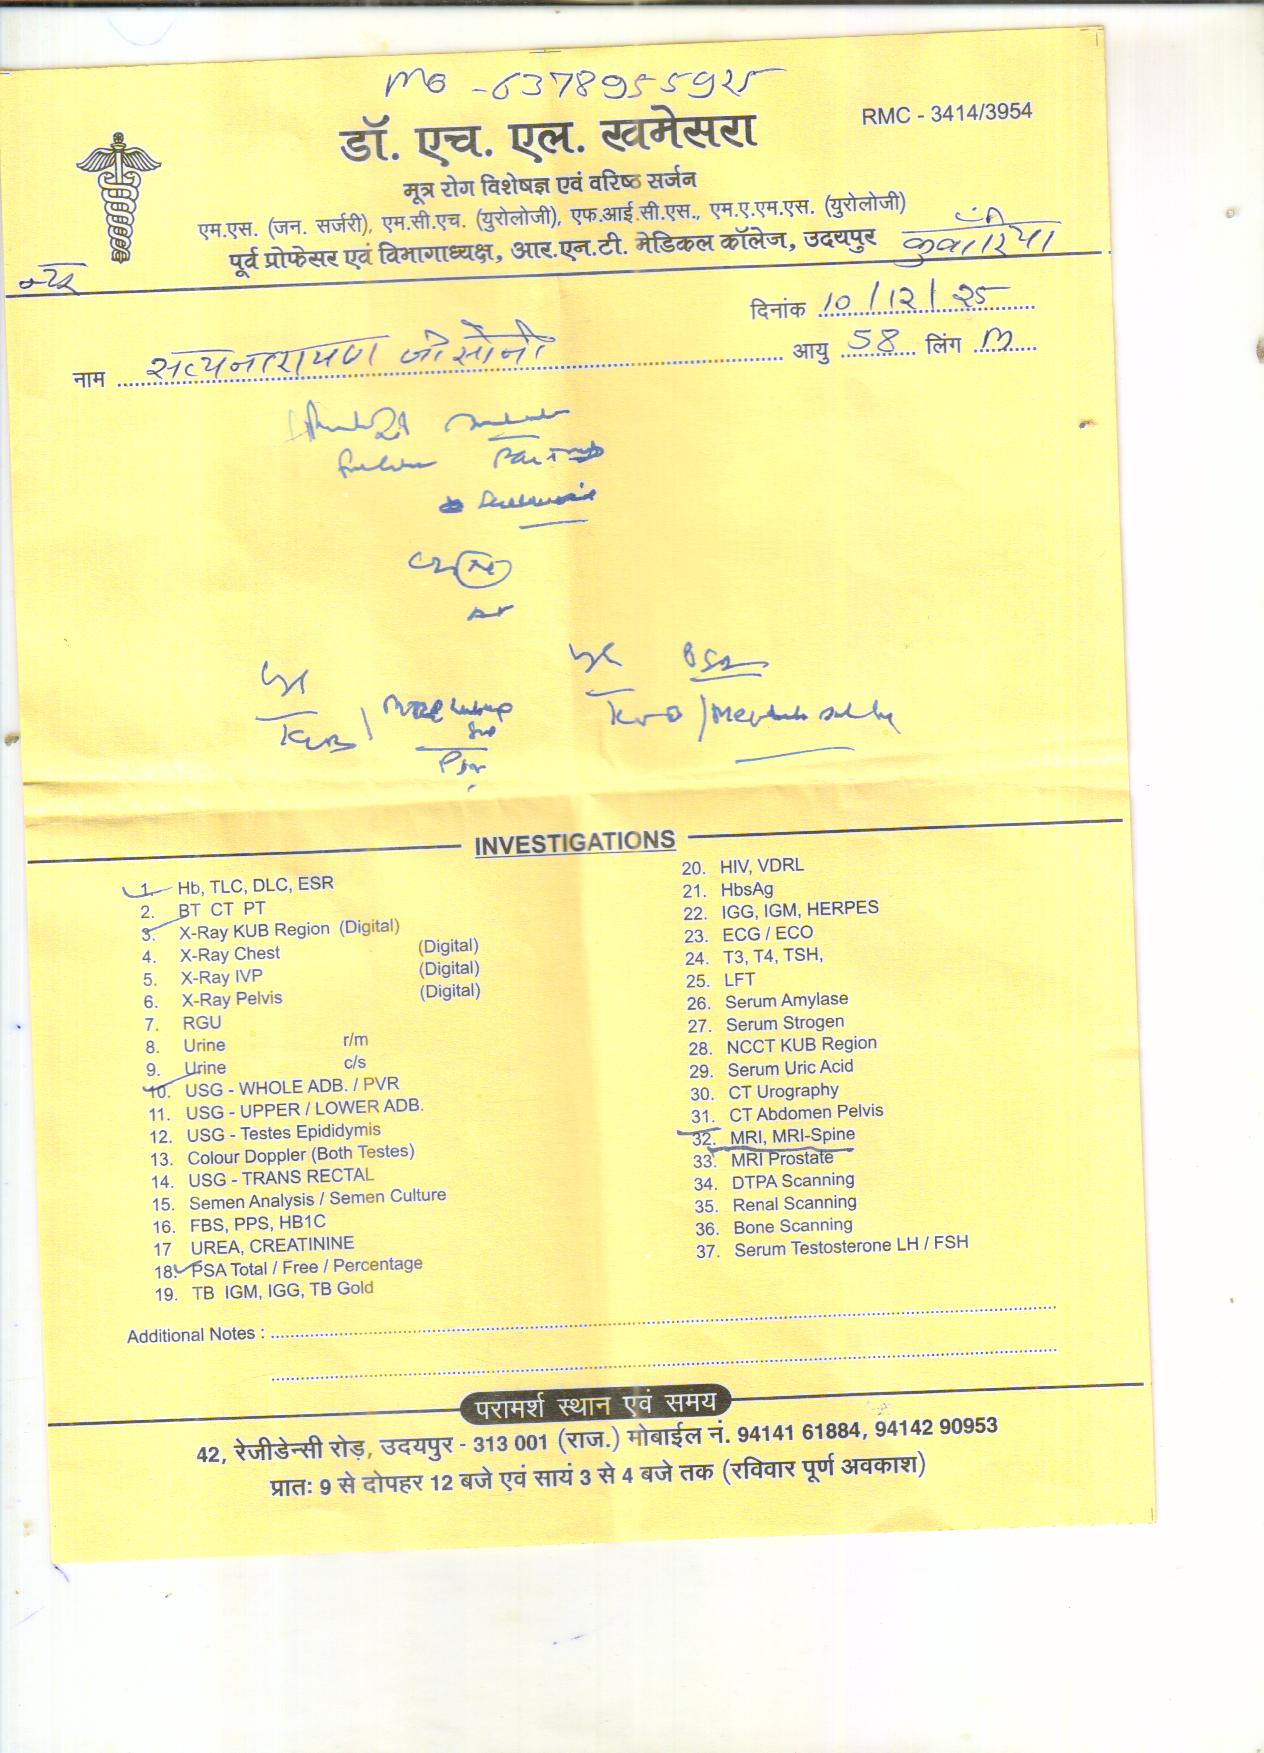 MB - 6378955925
RMC - 3414/3954
डॉ. एच. एल. खमेसरा
मूत्र रोग विशेषज्ञ एवं वरिष्ठ सर्जन
एम.एस. (जन. सर्जरी), एम.सी.एच. (युरोलोजी), एफ.आई.सी.एस., एम.ए.एम.एस. (युरोलोजी)
पूर्व प्रोफेसर एवं विभागाध्यक्ष, आर.एन.टी. मेडिकल कॉलेज, उदयपुर
दिनांक 10/12/25
नाम सत्यनारायण जी सोनी आयु 58 लिंग M
KUB
INVESTIGATIONS
1. Hb, TLC, DLC, ESR
2. BT CT PT
3. X-Ray KUB Region (Digital)
4. X-Ray Chest (Digital)
5. X-Ray IVP (Digital)
6. X-Ray Pelvis (Digital)
7. RGU
8. Urine r/m
9. Urine c/s
10. USG - WHOLE ADB. / PVR
11. USG - UPPER / LOWER ADB.
12. USG - Testes Epididymis
13. Colour Doppler (Both Testes)
14. USG - TRANS RECTAL
15. Semen Analysis / Semen Culture
16. FBS, PPS, HB1C
17 UREA, CREATININE
18. PSA Total / Free / Percentage
19. TB IGM, IGG, TB Gold
20. HIV, VDRL
21. HbsAg
22. IGG, IGM, HERPES
23. ECG / ECO
24. T3, T4, TSH,
25. LFT
26. Serum Amylase
27. Serum Strogen
28. NCCT KUB Region
29. Serum Uric Acid
30. CT Urography
31. CT Abdomen Pelvis
32. MRI, MRI-Spine
33. MRI Prostate
34. DTPA Scanning
35. Renal Scanning
36. Bone Scanning
37. Serum Testosterone LH / FSH
Additional Notes :
परामर्श स्थान एवं समय
42, रेजीडेन्सी रोड़, उदयपुर - 313 001 (राज.) मोबाईल नं. 94141 61884, 94142 90953
प्रातः 9 से दोपहर 12 बजे एवं सायं 3 से 4 बजे तक (रविवार पूर्ण अवकाश)